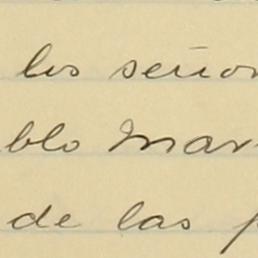 los señor
blo Mar
de las p